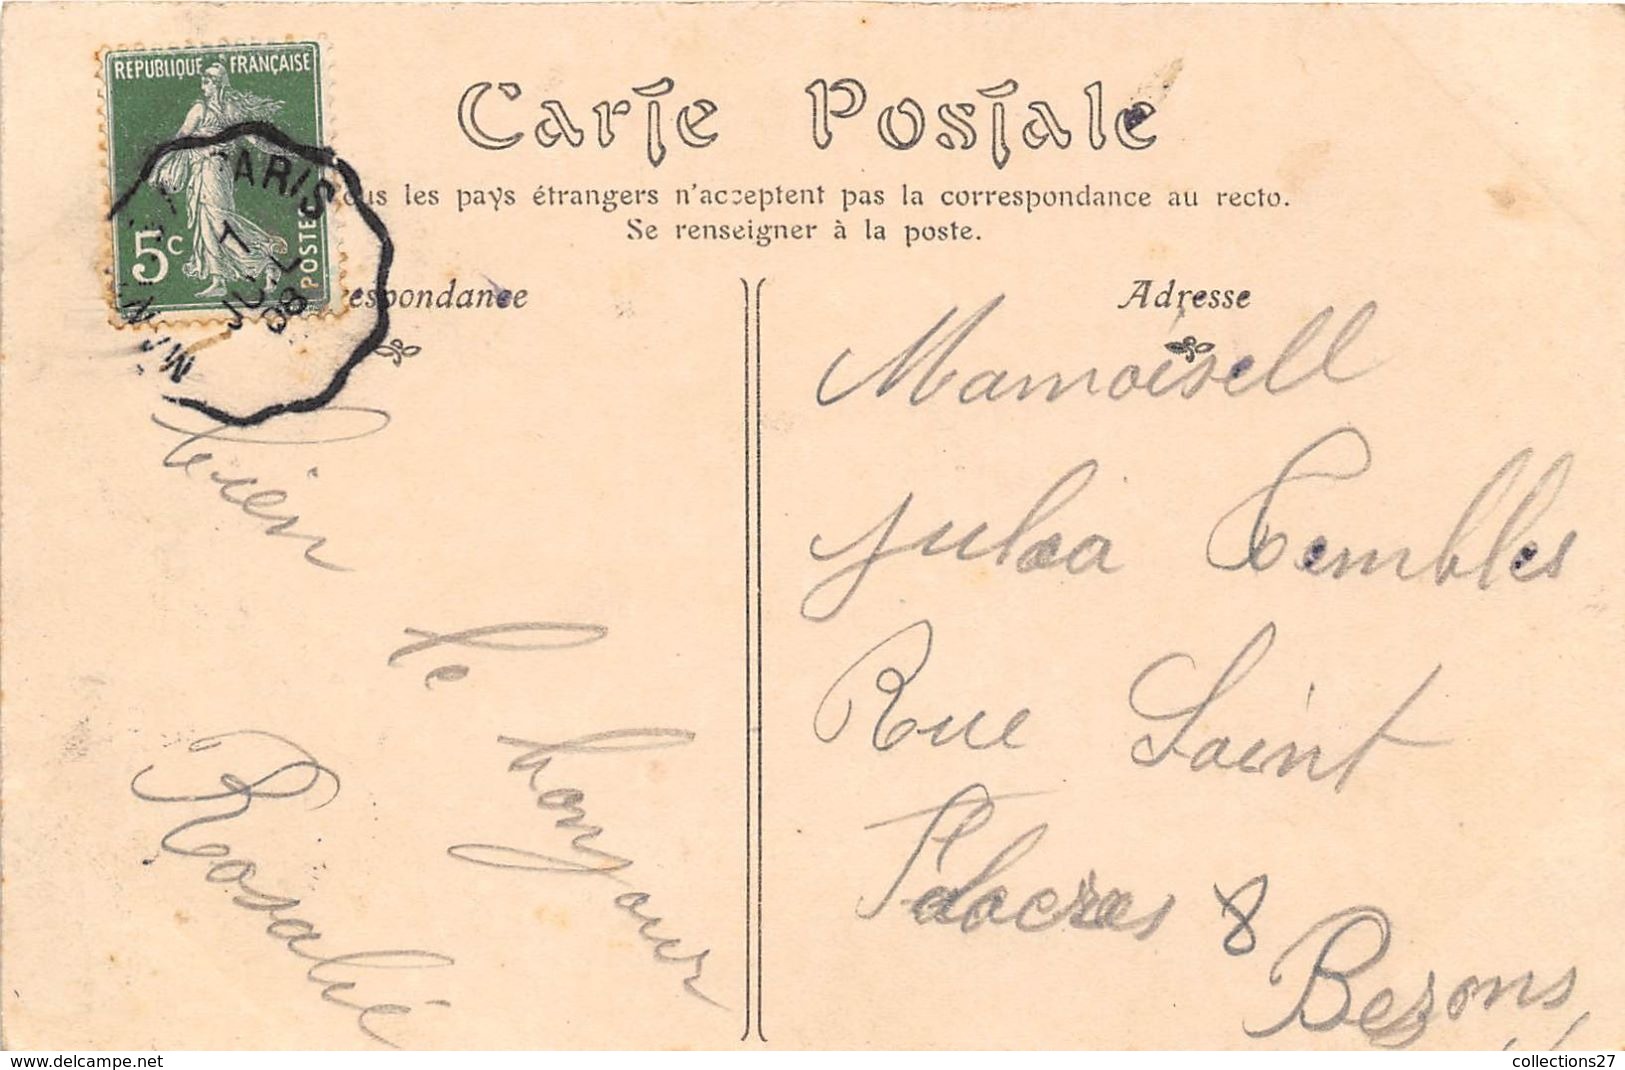 REPUBLIQUE FRANÇAISE
5c
POSTES
PARIS
08
Carte Postale
ous les pays étrangers n'acceptent pas la correspondance au recto.
Se renseigner à la poste.
respondance
bien
le
bonjour
Rosalié
Adresse
Mamoisell
julia Tembles
Rue Saint
8
Bezons
collections27